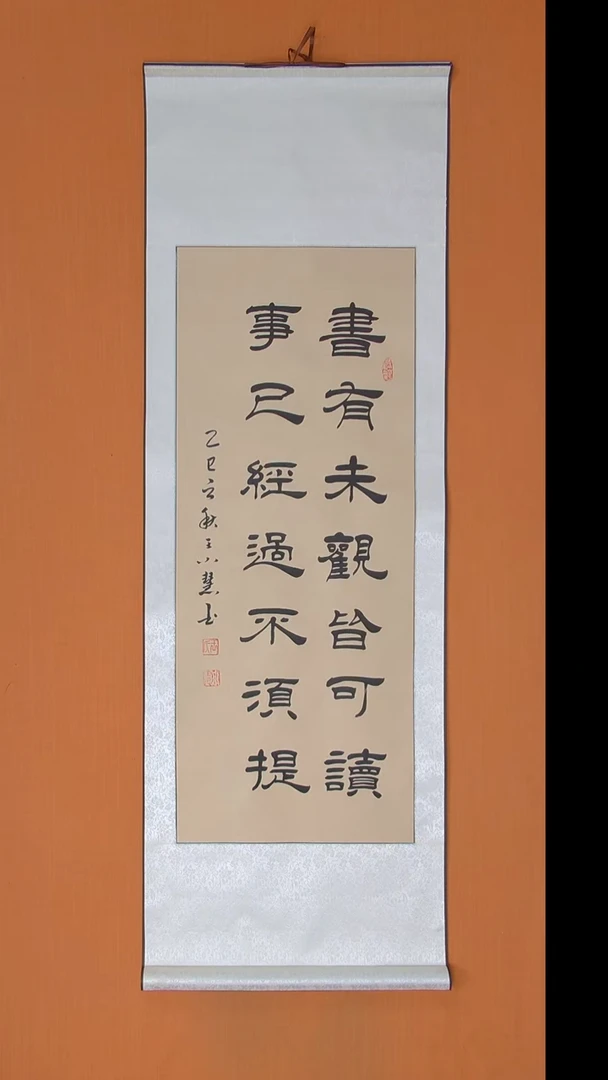 書有未觀皆可讀
事已經過不須提
乙巳立秋王小慧書